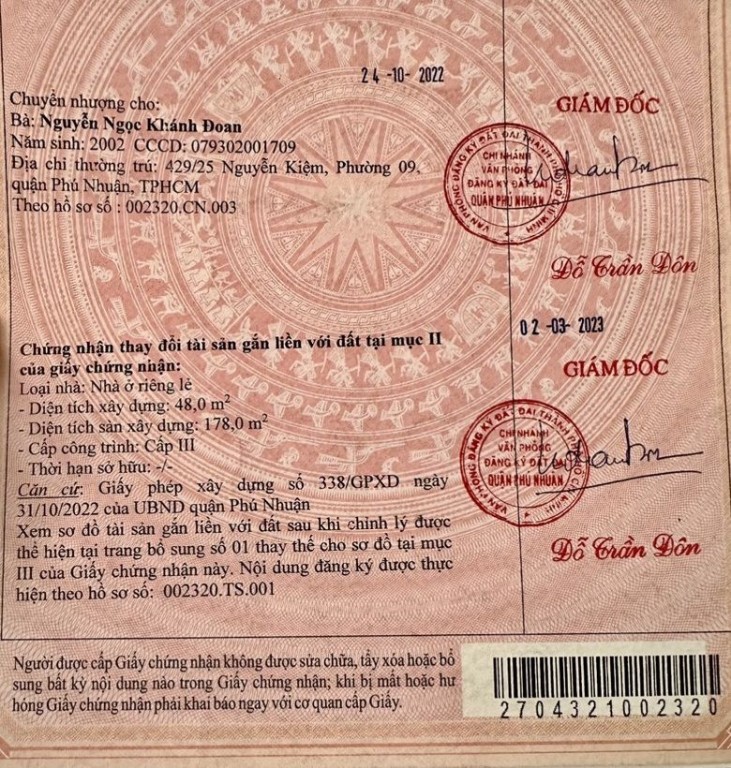 24-10-2022
Chuyển nhượng cho:
Bà: Nguyễn Ngọc Khánh Đoan
Năm sinh: 2002 CCCD: 079302001709
Địa chỉ thường trú: 429/25 Nguyễn Kiệm, Phường 09,
quận Phú Nhuận, TPHCM
Theo hồ sơ số : 002320.CN.003
GIÁM ĐỐC
VĂN PHÒNG ĐĂNG KÝ ĐẤT ĐAI THÀNH PHỐ HỒ CHÍ MINH
CHI NHÁNH
VĂN PHÒNG
ĐĂNG KÝ ĐẤT ĐAI
QUẬN PHÚ NHUẬN
Đỗ Trần Đôn
02-03-2023
Chứng nhận thay đổi tài sản gắn liền với đất tại mục II
của giấy chứng nhận:
Loại nhà: Nhà ở riêng lẻ
- Diện tích xây dựng: 48,0 m²
- Diện tích sàn xây dựng: 178,0 m²
- Cấp công trình: Cấp III
- Thời hạn sở hữu: -/-
Căn cứ: Giấy phép xây dựng số 338/GPXD ngày
31/10/2022 của UBND quận Phú Nhuận
Xem sơ đồ tài sản gắn liền với đất sau khi chỉnh lý được
thể hiện tại trang bổ sung số 01 thay thế cho sơ đồ tại mục
III của Giấy chứng nhận này. Nội dung đăng ký được thực
hiện theo hồ sơ số: 002320.TS.001
GIÁM ĐỐC
VĂN PHÒNG ĐĂNG KÝ ĐẤT ĐAI THÀNH PHỐ HỒ CHÍ MINH
CHI NHÁNH
VĂN PHÒNG
ĐĂNG KÝ ĐẤT ĐAI
QUẬN PHÚ NHUẬN
Đỗ Trần Đôn
Người được cấp Giấy chứng nhận không được sửa chữa, tẩy xóa hoặc bổ
sung bất kỳ nội dung nào trong Giấy chứng nhận; khi bị mất hoặc hư
hỏng Giấy chứng nhận phải khai báo ngay với cơ quan cấp Giấy.
2704321002320